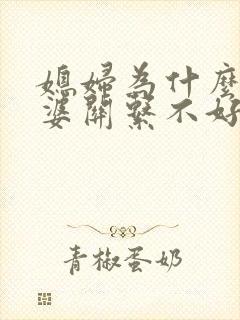 媳婦為什麼
婆關繫不好
青椒蛋奶